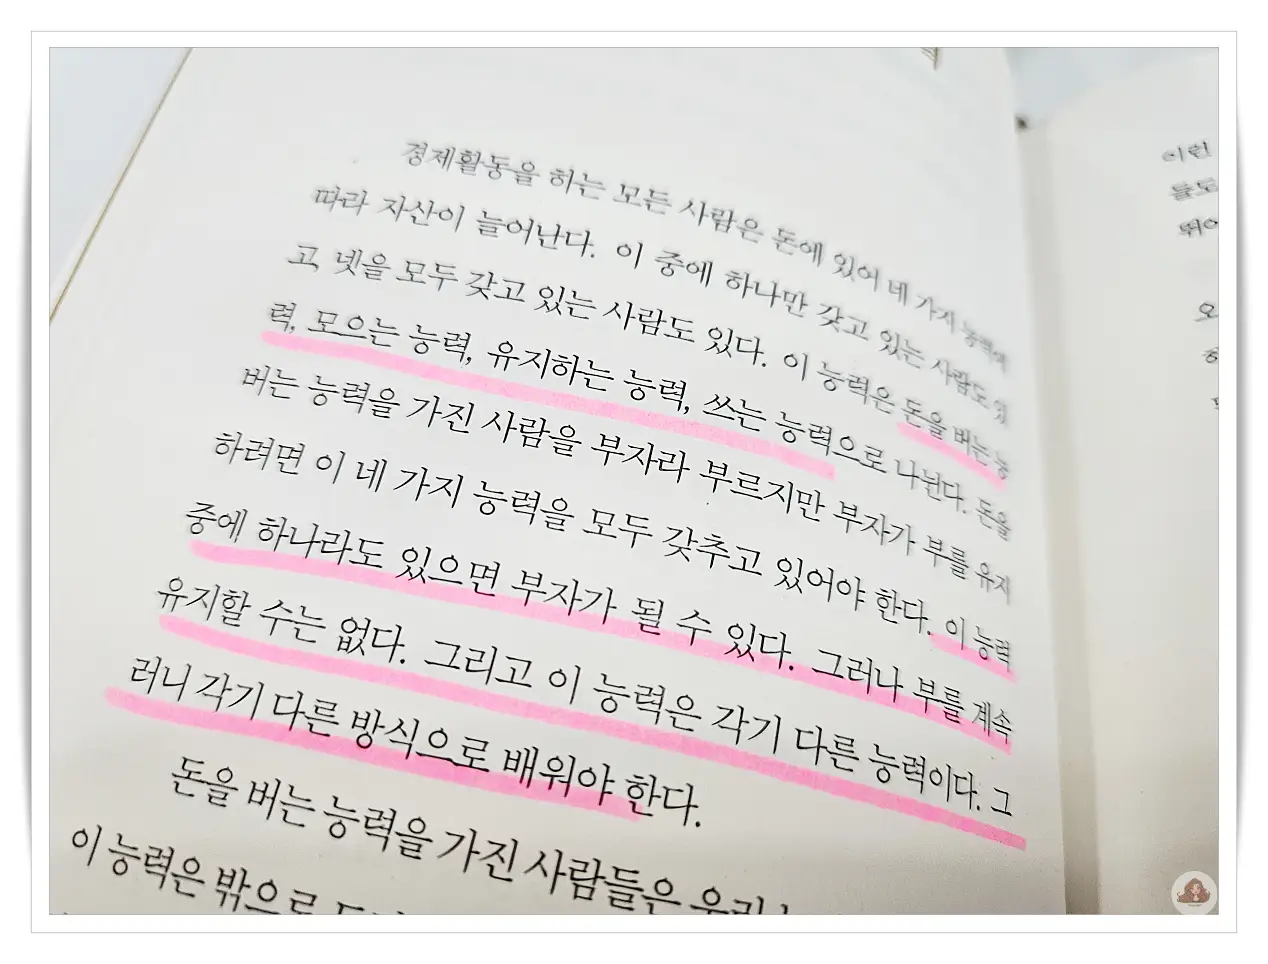 경제활동을 하는 모든 사람은 돈에 있어 네 가지 능력에
따라 자산이 늘어난다. 이 중에 하나만 갖고 있는 사람도 있
고, 넷을 모두 갖고 있는 사람도 있다. 이 능력은 돈을 버는 능
력, 모으는 능력, 유지하는 능력, 쓰는 능력으로 나뉜다. 돈을
버는 능력을 가진 사람을 부자라 부르지만 부자가 부를 유지
하려면 이 네 가지 능력을 모두 갖추고 있어야 한다. 이 능력
중에 하나라도 있으면 부자가 될 수 있다. 그러나 부를 계속
유지할 수는 없다. 그리고 이 능력은 각기 다른 능력이다. 그
러니 각기 다른 방식으로 배워야 한다.
돈을 버는 능력을 가진 사람들은
이 능력은 밖으로
이런
들도
뛰어